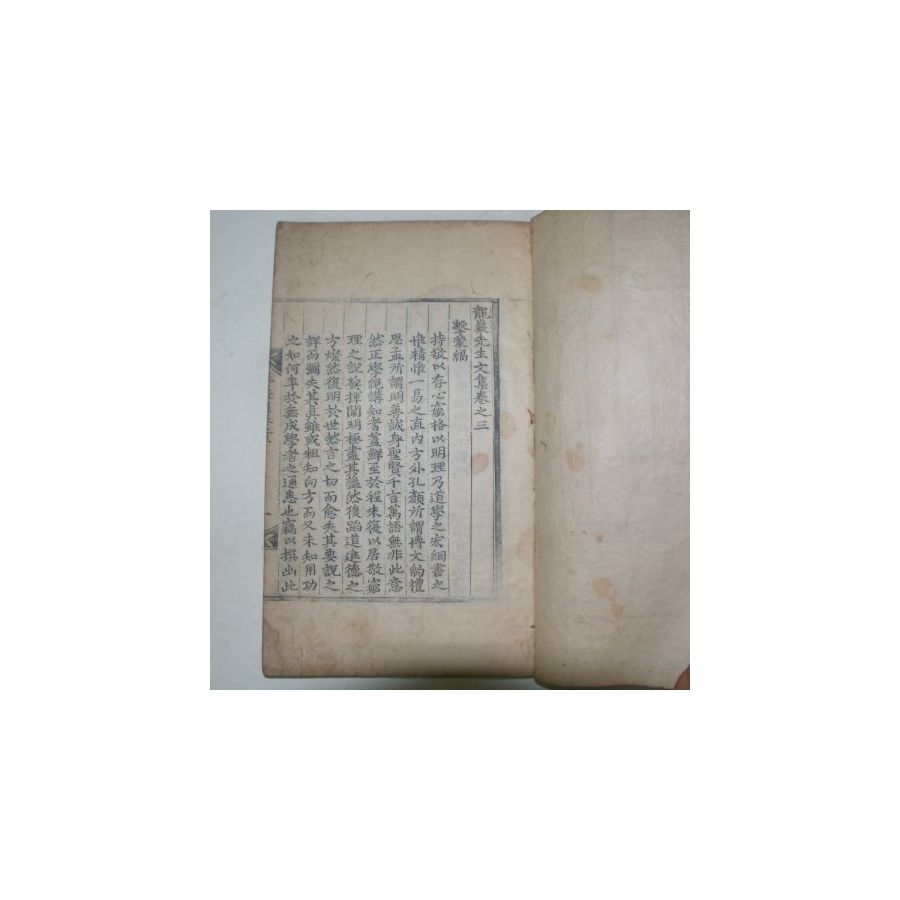 龍巖先生文集卷之三
擊蒙編
持敬以存心窮格以明理乃道學之宏綱書之
惟精惟一易之直內方外孔顏所謂博文約禮
思孟所謂明善誠身聖賢千言萬語無非此意
然正學絕講知者蓋鮮至於程朱復以居敬窮
理之說發揮闡明極盡其蘊然後蹈道進德之
方燦然復明於世然言之切而愈失其要說之
詳而彌失其眞雖或粗知向方而又未知用功
之如何卒於無成學者之通患也竊以撰出此